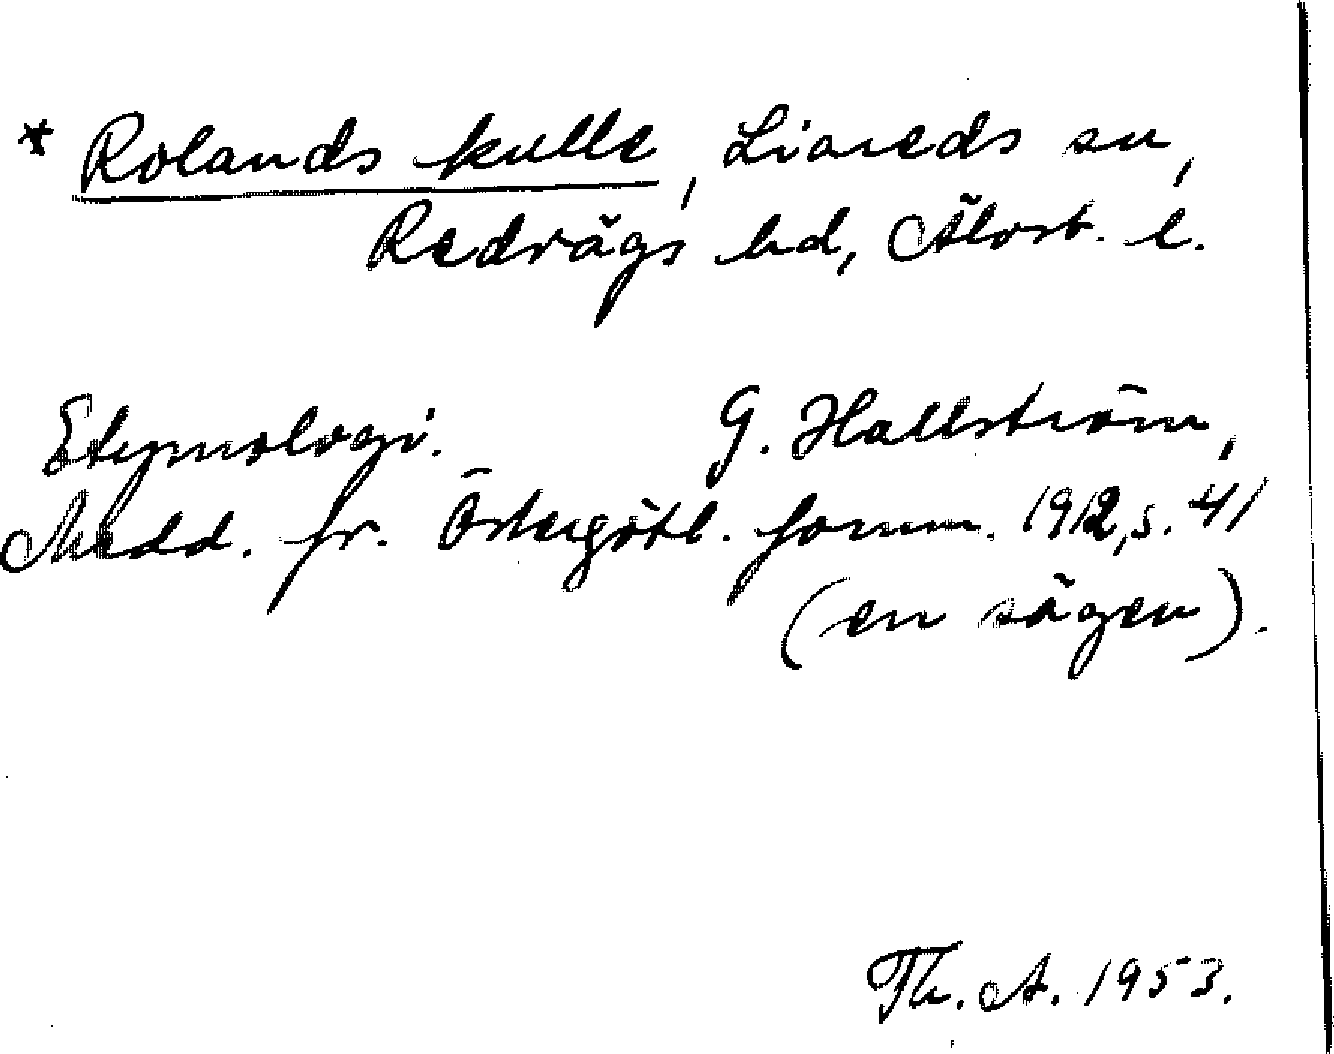 * Rolands kulle, Liareds sn,
Redvägs hd, Älvsb. l.
Etymologi. G. Hallström,
Medd. fr. Östergötl. fornm. 1912, s. 41
(en sägen).
Th. A. 1953.